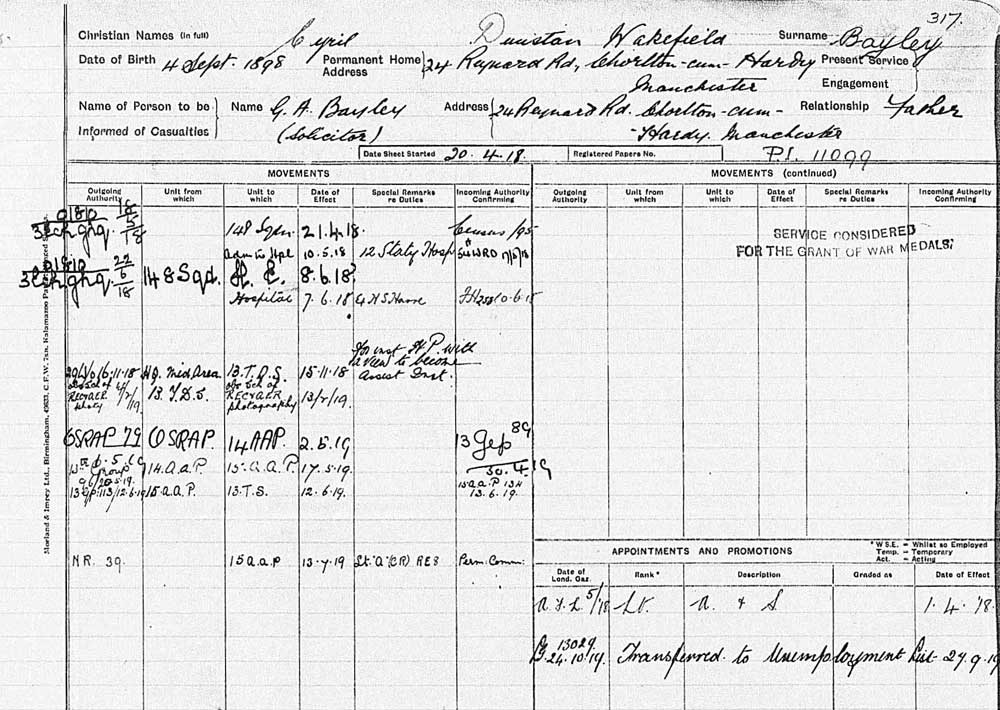 317.
Christian Names (in full) Cyril Dunstan Wakefield Surname Bayley
Date of Birth 4 Sept. 1898 Permanent Home Address 24 Reynard Rd, Chorlton-cum-Hardy Manchester Present Service Engagement
Name of Person to be Informed of Casualties Name G. A. Bayley (Solicitor) Address 24 Reynard Rd. Chorlton-cum-Hardy. Manchester Relationship Father
Date Sheet Started 20.4.18. Registered Papers No. P.I. 11099
MOVEMENTS
Outgoing Authority Unit from which Unit to which Date of Effect Special Remarks re Duties Incoming Authority Confirming
148 Sqn. 21.4.18. Census/95
Adm to Hpl 10.5.18 12 Staty Hosp
148 Sqd. H. E. 8.6.18
Hospital 7.6.18
for inst H.P. with
a view to become
16.11.18 HQ. Mid Area 13.T.D.S. 15.11.18 Assist Inst.
13.T.D.S. Sch of photography 13/2/19.
OSRAP 79 OSRAP. 14 AAP. 2.5.19 13 Gep 89
30.4.19
14.A.A.P. 15.A.A.P 17.5.19
13 Gp. 113/12.6.19 15.A.A.P. 13.T.S. 12.6.19. 15 A.A.P 13.6.19.
NR. 39. 15 A.A.P 13.7.19 Perm. Comm.
MOVEMENTS (continued)
Outgoing Authority Unit from which Unit to which Date of Effect Special Remarks re Duties Incoming Authority Confirming
SERVICE CONSIDERED
FOR THE GRANT OF WAR MEDALS.
APPOINTMENTS AND PROMOTIONS
* W.S.E. = Whilst so Employed
Temp. = Temporary
Act. = Acting
Date of Lond. Gaz. Rank * Description Graded as Date of Effect
A.F.L. 5/18 Lt. A. & S 1.4.18
G. 13029 24.10.19. Transferred to Unemployment List 27.9.19
Morland & Impey Ltd., Birmingham, 49633, C.F.W. 7xn. Kalamazoo